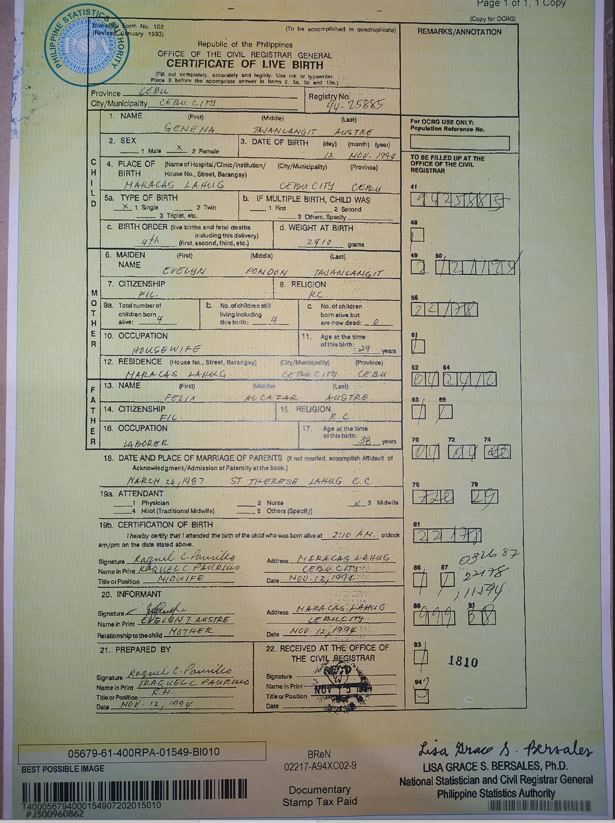 Page 1 of 1, 1 Copy
Municipal Form No. 102
(Revised January 1993)
(To be accomplished in quadruplicate)
(Copy for OCRG)
PHILIPPINE STATISTICS AUTHORITY
Republic of the Philippines
OFFICE OF THE CIVIL REGISTRAR GENERAL
CERTIFICATE OF LIVE BIRTH
(Fill out completely, accurately and legibly. Use ink or typewriter.
Place X before the appropriate answer in Items 2, 5a, 5b and 19a.)
REMARKS/ANNOTATION
Province CEBU
City/Municipality CEBU CITY
Registry No.
94-25885
1. NAME (First) (Middle) (Last)
GENENA TAJANLANGIT AUSTRE
For OCRG USE ONLY:
Population Reference No.
2. SEX
1 Male X 2 Female
3. DATE OF BIRTH (day) (month) (year)
12 NOV. 1994
CHILD
4. PLACE OF BIRTH (Name of Hospital/Clinic/Institution/ House No., Street, Barangay) (City/Municipality) (Province)
MARACAS LAHUG CEBU CITY CEBU
TO BE FILLED UP AT THE
OFFICE OF THE CIVIL
REGISTRAR
5a. TYPE OF BIRTH
X 1 Single 2 Twin
3 Triplet, etc.
b. IF MULTIPLE BIRTH, CHILD WAS
1 First 2 Second
3 Others, Specify
41
c. BIRTH ORDER (live births and fetal deaths
including this delivery)
4th
(first, second, third, etc.)
d. WEIGHT AT BIRTH
2910 grams
48
MOTHER
6. MAIDEN NAME (First) (Middle) (Last)
EVELYN PONDON TAJANLANGIT
49 50
7. CITIZENSHIP
FIL.
8. RELIGION
R.C.
9a. Total number of
children born
alive: 4
b. No. of children still
living including
this birth: 4
c. No. of children
born alive but
are now dead: 0
56
10. OCCUPATION
HOUSEWIFE
11. Age at the time
of this birth: 29 years
61
12. RESIDENCE (House No., Street, Barangay) (City/Municipality) (Province)
MARACAS LAHUG CEBU CITY CEBU
62 64
FATHER
13. NAME (First) (Middle) (Last)
FELIX ALCAZAR AUSTRE
14. CITIZENSHIP
FIL.
15. RELIGION
R.C
69
16. OCCUPATION
LABORER
17. Age at the time
of this birth: 38 years
70 72 74
18. DATE AND PLACE OF MARRIAGE OF PARENTS (If not married, accomplish Affidavit of
Acknowledgment/Admission of Paternity at the back.)
MARCH 26, 1987 ST THERESE LAHUG C.C.
19a. ATTENDANT
1 Physician 2 Nurse X 3 Midwife
4 Hilot (Traditional Midwife) 5 Others (Specify)
79
19b. CERTIFICATION OF BIRTH
I hereby certify that I attended the birth of the child who was born alive at 2:10 A.M. o'clock
am/pm on the date stated above.
81
Signature
Name in Print RAQUEL C.
Title or Position MIDWIFE
Address MARACAS LAHUG
CEBU CITY
Date NOV. 12, 1994
86 87
20. INFORMANT
Signature
Name in Print EVELYN T. AUSTRE
Relationship to the child MOTHER
Address MARACAS, LAHUG
CEBU CITY
Date NOV. 12, 1994
88 91
21. PREPARED BY
Signature
Name in Print RAQUEL C.
Title or Position R.M.
Date NOV. 12, 1994
22. RECEIVED AT THE OFFICE OF
THE CIVIL REGISTRAR
Signature
Name in Print
Title or Position
Date
93
1810
94
05679-61-400RPA-01549-BI010
BEST POSSIBLE IMAGE
T400056794000154907202015010
PJ300960862
BReN
02217-A94XC02-9
Documentary
Stamp Tax Paid
Lisa Grace S. Bersales
LISA GRACE S. BERSALES, Ph.D.
National Statistician and Civil Registrar General
Philippine Statistics Authority